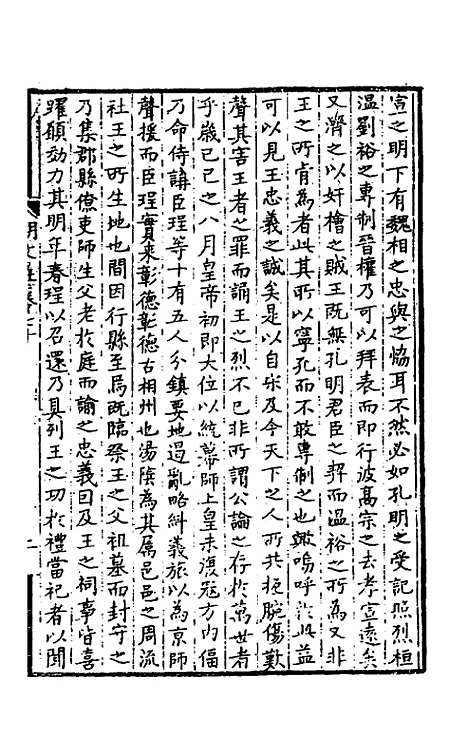 宣之明下有魏相之忠與之恊耳不然必如孔明之受記照烈桓
温劉裕之專制晉權乃可以拜表而即行彼高宗之去孝宣遠矣
又濟之以奸檜之賊王既無孔明君臣之契而温裕之所為又非
王之所肯為者此其所以寧死而不敢專制之也嗚呼於此益
可以見王忠義之誠矣是以自宋及今天下之人所共扼腕傷歎
聲其害王者之罪而誦王之烈不已非所謂公論之存於萬世者
乎歲己巳之八月皇帝初即大位以統幕師上皇未復冦方内偪
乃命侍講臣珵等十有五人分鎮要地遏亂略糾義旅以為京師
聲援而臣珵實来彰德彰德古相州也湯陰為其属邑邑之周流
社王之所生地也間因行縣至焉既臨祭王之父祖墓而封守之
乃集郡縣僚吏師生父老於庭而諭之忠義曰及王之祠事皆喜
躍願効力其明年春珵以召還乃具列王之功於禮當祀者以聞
明文在卷六十